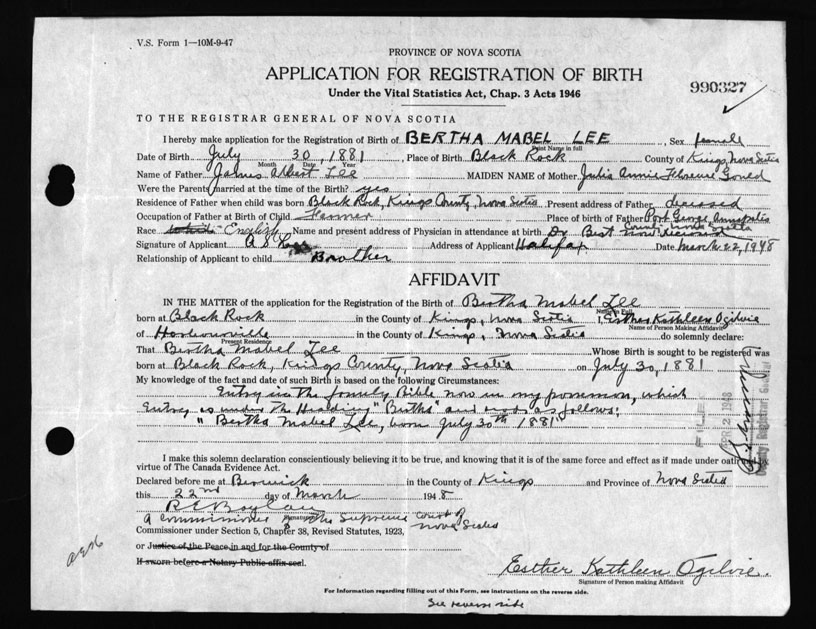 V.S. Form 1—10M-9-47
PROVINCE OF NOVA SCOTIA
APPLICATION FOR REGISTRATION OF BIRTH
990327
Under the Vital Statistics Act, Chap. 3 Acts 1946
TO THE REGISTRAR GENERAL OF NOVA SCOTIA
I hereby make application for the Registration of Birth of BERTHA MABEL LEE, Sex female
Print Name in full
Date of Birth July 30, 1881, Place of Birth Black Rock County of Kings, Nova Scotia
Month Date Year
Name of Father James Albert Lee MAIDEN NAME of Mother Julia Annie Florence Gould
Were the Parents married at the time of the Birth? yes
Residence of Father when child was born Black Rock, Kings County, Nova Scotia Present address of Father deceased
Occupation of Father at Birth of Child Farmer Place of birth of Father Port George, Annapolis
County Nova Scotia
Race English Name and present address of Physician in attendance at birth Dr Best now deceased
Signature of Applicant Address of Applicant Halifax Date March 22, 1948
Relationship of Applicant to child Brother
AFFIDAVIT
IN THE MATTER of the application for the Registration of the Birth of Bertha Mabel Lee
Name in Full
born at Black Rock in the County of Kings, Nova Scotia I, Esther Kathleen Ogilvie
Name of Person Making Affidavit
of Harbourville in the County of Kings, Nova Scotia do solemnly declare:
Present Residence
That Bertha Mabel Lee Whose Birth is sought to be registered was
born at Black Rock, Kings County, Nova Scotia on July 30, 1881
My knowledge of the fact and date of such Birth is based on the following Circumstances:
Entry in the family Bible now in my possession, which
Entry is under the Heading "Births" and reads as follows:
"Bertha Mabel Lee, born July 30th 1881"
I make this solemn declaration conscientiously believing it to be true, and knowing that it is of the same force and effect as if made under oath by
virtue of The Canada Evidence Act.
Declared before me at Berwick in the County of Kings and Province of Nova Scotia
this 22nd day of March 1948
A commissioner of the Supreme Court of
Nova Scotia
Commissioner under Section 5, Chapter 38, Revised Statutes, 1923,
or Justice of the Peace in and for the County of
If sworn before a Notary Public affix seal.
Esther Kathleen Ogilvie.
Signature of Person making Affidavit
For Information regarding filling out of this Form, see instructions on the reverse side.
See reverse side